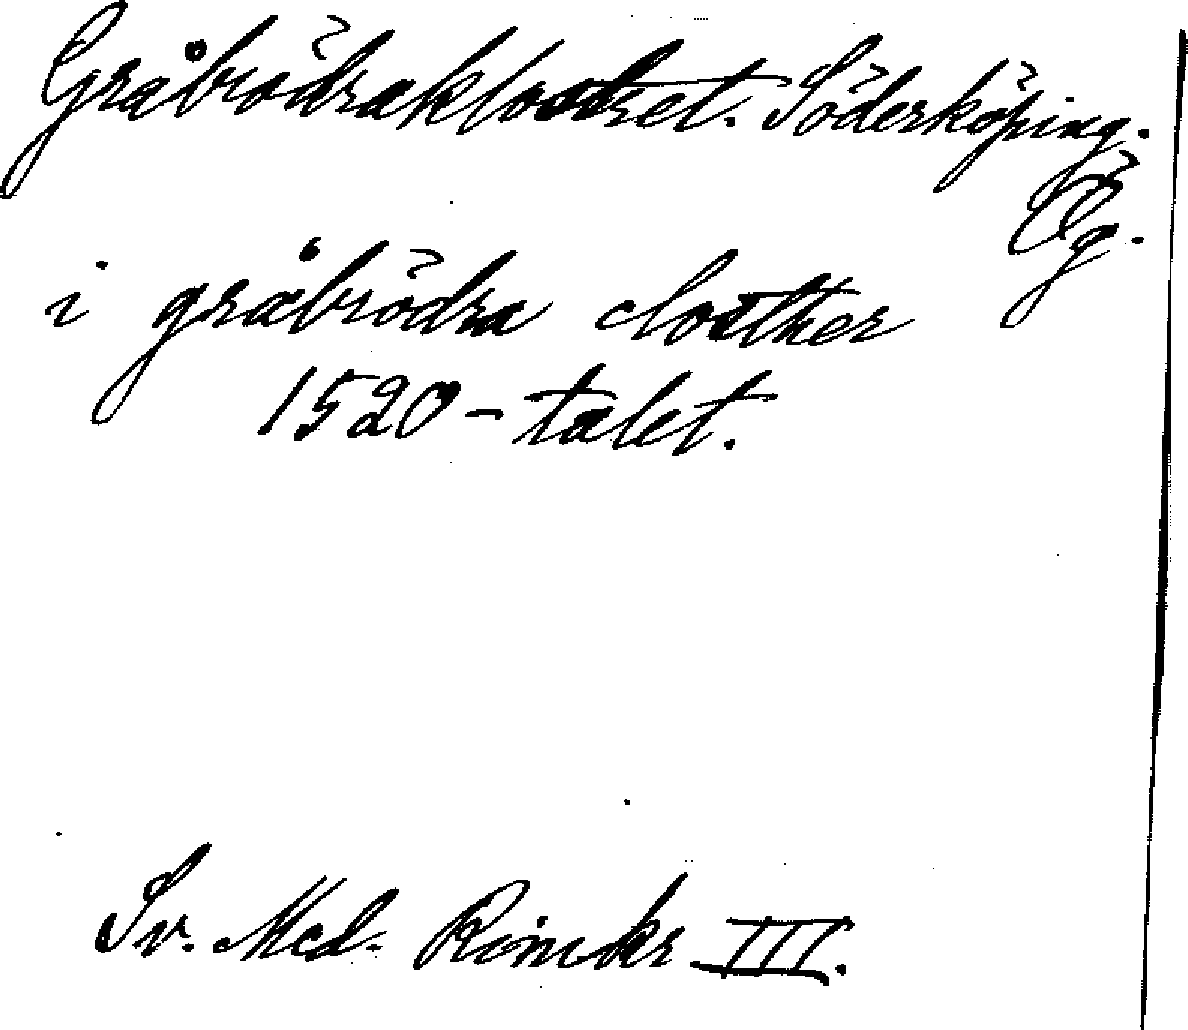 Gråbrödraklostret. Söderköping.
Ög.
i gråbrödra closther
1520-talet.
Sv. Med. Rimkr III.